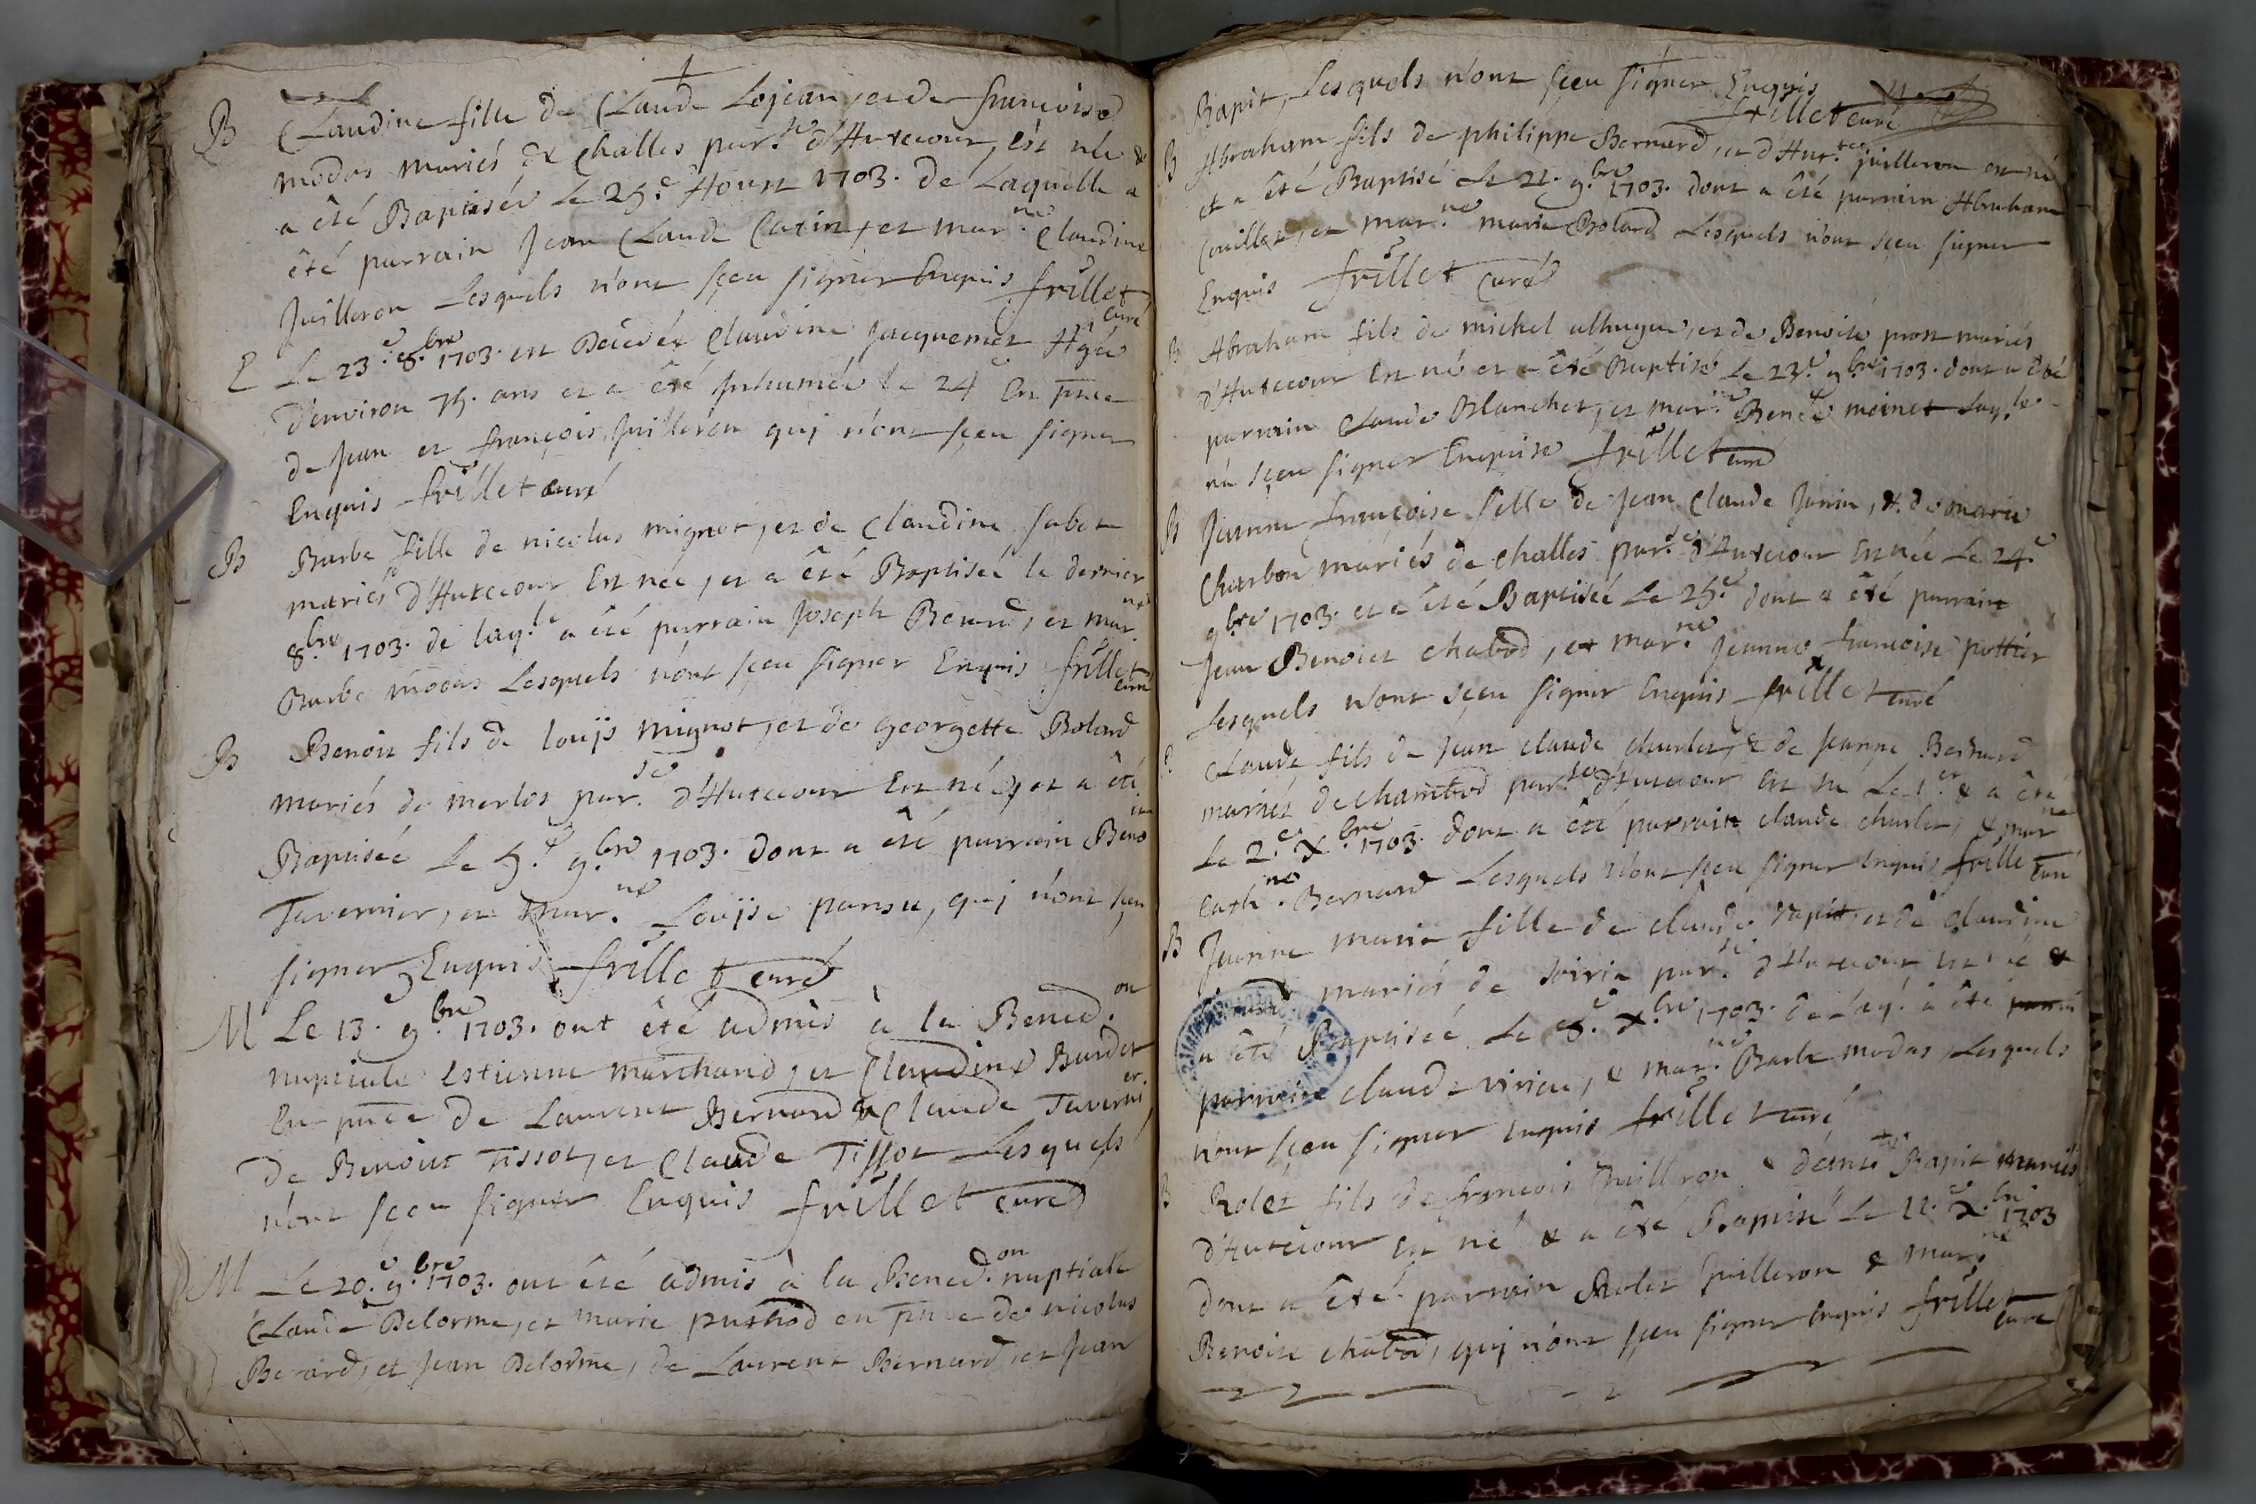 B Claudine fille de Claude Lojean, et de françoise
modas mariés de Challes par.se d'Hutecour, est née &
a été Baptisée le 25.e Aoust 1703. de Laquelle a
été parrain Jean Claude Catin, et mar.ne Claudine
Juilleron Lesquels n'ont sçeu signer Enquis frillet
curé
E Le 23.e 8.bre 1703. est Décédée Claudine Jacquemet Agée
d'environ 75. ans et a été inhumée le 24.e En pñce
de Jean et françois Juilleron qui n'ont sçeu signer
Enquis frillet curé
B Barbe fille de nicolas mignot, et de Claudine sabot
mariés d'Hutecour Est née, et a été Baptisée le dernier
8.bre 1703. de laq.le a été parrain Joseph Berard, et mar.ne
Barbe modas Lesquels n'ont sçeu signer Enquis frillet
curé
B Benoit fils de louijs mignot, et de georgette Bolard
mariés de merlos par.se d'Hutecour Est né, et a été
Baptisée Le 5.e 9.bre 1703. dont a été parrain Benoit
Tavernier, et mar.ne Louijse pansu, qui n'ont sçeu
signer Enquis frillet curé
M Le 13. 9.bre 1703. ont été admis à la Bened.on
nuptiale estienne marchand, et Claudine Burdet
En pñce de Laurent Bernard & Claude Tavernier,
de Benoit Tissot, et Claude Tissot Lesquels
n'ont sçeu signer Enquis frillet curé
M Le 20.e 9.bre 1703. ont été admis à la Bened.on nuptiale
Claude Delorme, et marie puthod en pñce de nicolas
Berard, et Jean Delorme, de Laurent Bernard, et Jean
Bapit, Lesquels n'ont sçeu signer Enquis
frillet curé
B Abraham fils de philippe Bernard, et d'Hur.te juilleron est né
et a été Baptisé Le 21. 9.bre 1703. dont a été parrain Abraham
Cuillet, et mar.ne marie Bolard Lesquels n'ont sçeu signer
Enquis frillet curé
B Abraham fils de michel, et de Benoite pront mariés
d'Hutecour Est né et a été Baptisé Le 23.e 9.bre 1703. dont a été
parrain Claude Blanchet, et mar.ne Ben.te moinet Laq.le
n'a sçeu signer Enquise frillet curé
B Jeanne françoise fille de Jean Claude Janin, & de marie
Charbon mariés de Challes par.se d'Hutecour Est née Le 24.e
9.bre 1703. et a été Baptisée Le 25.e dont a été parrain
Jean Benoiet chabod, et mar.ne Jeanne françoise pottier
Lesquels n'ont sçeu signer Enquis frillet curé
Claude fils de Jean claude charlet, & de Jeanne Bernard
mariés de chambod par.se d'Hutecour Est né Le 1.er & a été
Le 2.e X.bre 1703. dont a été parrain claude charlet, & mar.ne
Cath.ne Bernard Lesquels n'ont sçeu signer Enquis frillet curé
B Jeanne marie fille de claude Bapit, et de Claudine
mariés de soiria par.se d'Hutecour Est née &
a été Baptisée Le 8.e X.bre 1703. de Laq. a été
parrain claude virieu, & mar.ne Barbe modas Lesquels
n'ont sçeu signer Enquis frillet curé
B Rolet fils de françois Juilleron & Bapit mariés
d'Hutecour Est né & a été Baptisé Le 11.e X.bre 1703
dont a été parrain Rolet Juilleron & mar.ne
Benoite chabod, qui n'ont sçeu signer Enquis frillet
curé